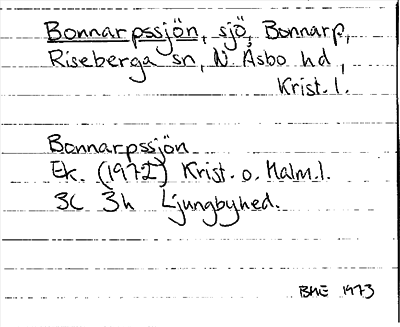 Bonnarpssjön, sjö, Bonnarp,
Riseberga sn, N. Åsbo hd,
Krist. l.
Bonnarpssjön
Ek. (1972) Krist. o. Malm. l.
3C 3h Ljungbyhed.
BHE 1973